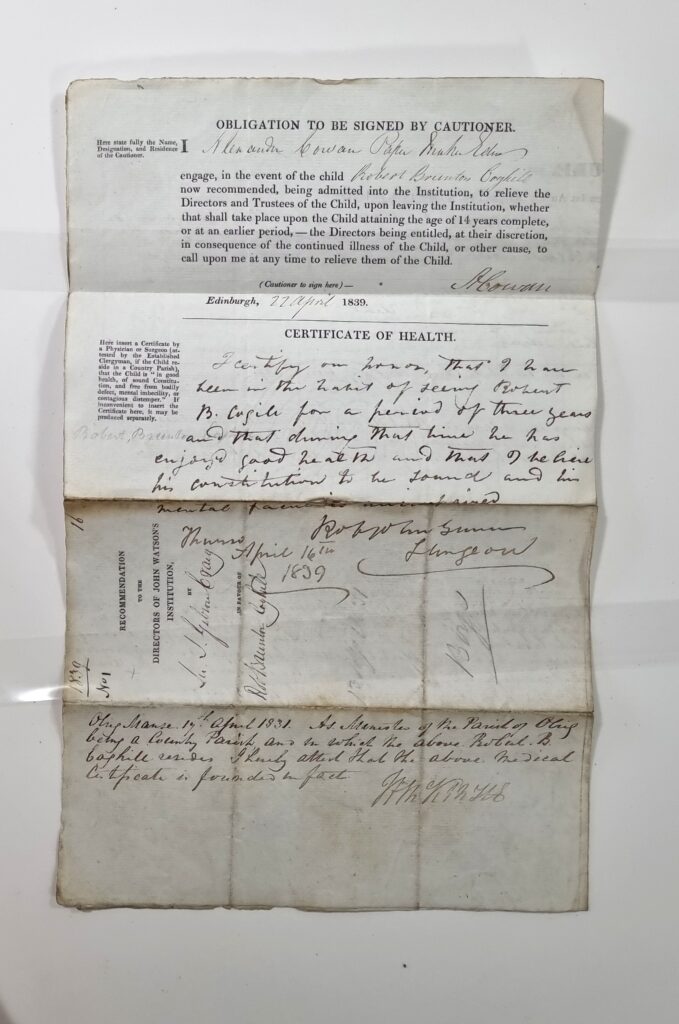 OBLIGATION TO BE SIGNED BY CAUTIONER.
Here state fully the Name,
Designation, and Residence
of the Cautioner.
I Alexander Cowan Paper Maker Edinr
engage, in the event of the child Robert Brunton Coghill
now recommended, being admitted into the Institution, to relieve the
Directors and Trustees of the Child, upon leaving the Institution, whether
that shall take place upon the Child attaining the age of 14 years complete,
or at an earlier period,—the Directors being entitled, at their discretion,
in consequence of the continued illness of the Child, or other cause, to
call upon me at any time to relieve them of the Child.
(Cautioner to sign here)—
A Cowan
Edinburgh, 22 April 1839.
CERTIFICATE OF HEALTH.
Here insert a Certificate by
a Physician or Surgeon (at-
tested by the Established
Clergyman, if the Child re-
side in a Country Parish),
that the Child is "in good
health, of sound Constitu-
tion, and free from bodily
defect, mental imbecility, or
contagious distemper." If
inconvenient to insert the
Certificate here, it may be
produced separately.
I certify on honor, that I have
been in the habit of seeing Robert
B. Cogill for a period of three years
and that during that time he has
enjoyd good health and that I believe
his constitution to be sound and his
mental
Robert, Brunton
Thurso
April 16th
1839
Robt John Gunn
Surgeon
16
1839
No 1
RECOMMENDATION
TO THE
DIRECTORS OF JOHN WATSON'S
INSTITUTION,
BY
Gibson Craig
IN FAVOUR OF
Rt Brunton Coghill
Boys
Olrig Manse 17th April 1831. As Minister of the Parish of Olrig
being a Country Parish and in which the above Robert B.
Coghill resides I hereby attest that the above medical
Certificate is founded in fact